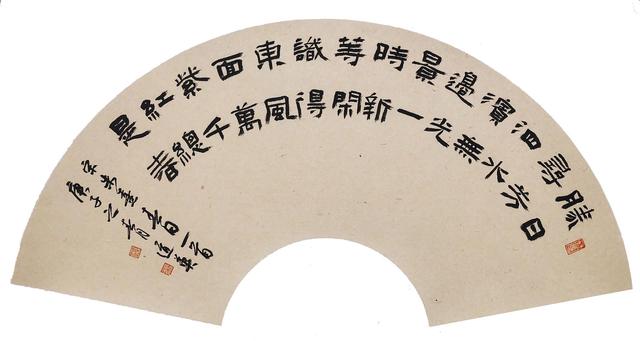 勝日
尋芳
泗水
濱無
邊光
景一
時新
等閑
識得
東風
面萬
紫千
紅總
是春
宋朱熹春日一首
庚子之春月道